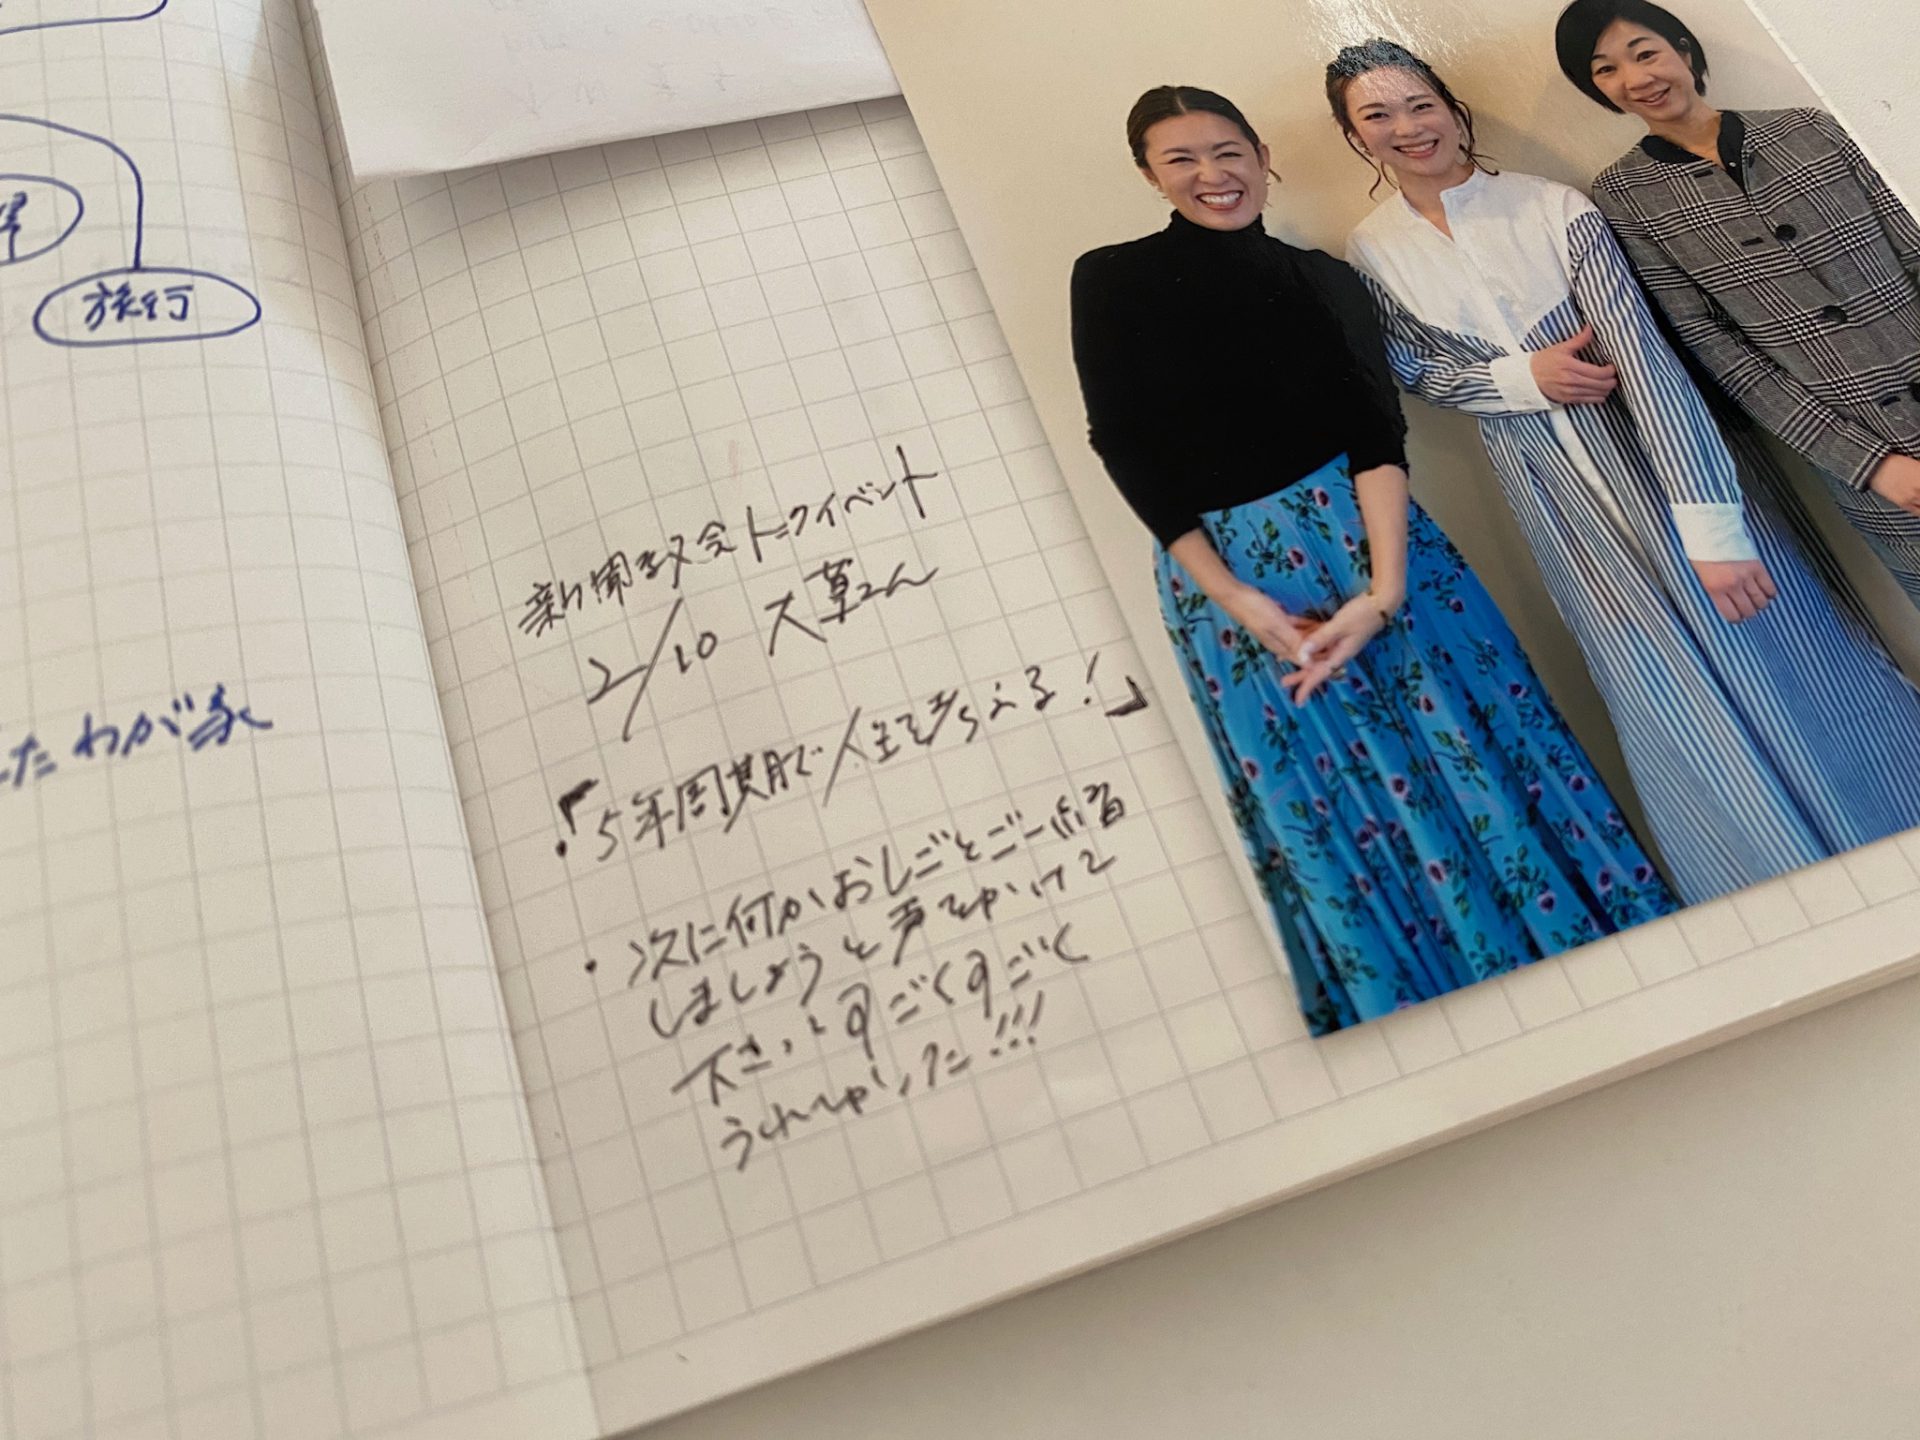 旅行
たわが家
新聞教会トークイベント
2/10 大草さん
・「5年周期で人生を考える!」
・次に何かおしごとご一緒
しましょうと声をかけて
下さってすごくすごく
うれしかった!!!